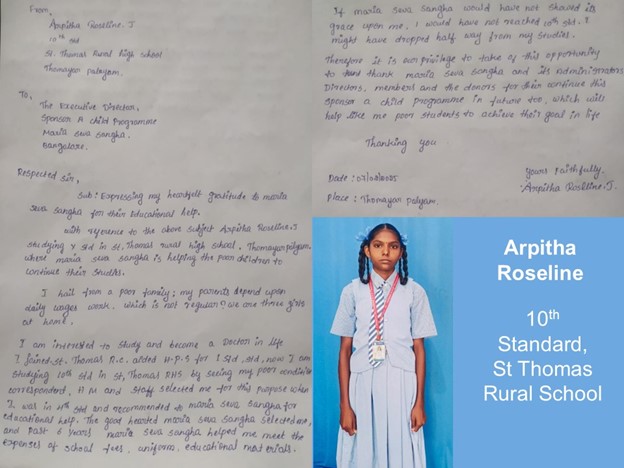 From,
Arpitha Roseline. J
10th std
St. Thomas Rural high school
Thomayan palyam.
To,
The Executive Director,
Sponsor A child Programme
Maria Seva Sangha.
Bangalore.
Respected Sir,
Sub: Expressing my heartfelt gratitude to maria
Seva Sangha for their Educational help.
With reference to the above subject Arpitha Roseline.J
studying X std in St. Thomas rural high school, Thomayan palyam,
where maria seva sangha is helping the poor children to
continue their studies.
I hail from a poor family; my parents depend upon
daily wages work. which is not regular? we are three girls
at home.
I am interested to study and become a Doctor in life
I joined St. Thomas R.C. aided H.P.S for 1 std, std, now I am
studying 10th std in St, Thomas RHS by seeing my poor condition
correspondent, H M and Staff selected me for this purpose when
I was in 4th std and recommended to maria seva sangha for
educational help. The good hearted maria seva sangha selected me,
and past 6 years maria seva sangha helped me meet the
expenses of school fees, uniform, educational materials.
If maria seva sangha would have not showed is
grace upon me, I would have not reached 10th std. I
might have dropped half way from my studies.
Therefore it is own privilege to take of this opportunity
to thank maria seva sangha and its administrators
Directors, members and the donors for their continue this
sponsor a child programme in future too, which will
help like me poor students to achieve their goal in life
Thanking you
Yours Faithfully,
Arpitha Roseline. J.
Date:
Place: Thomayan palyam.
Arpitha
Roseline
10th
Standard,
St Thomas
Rural School